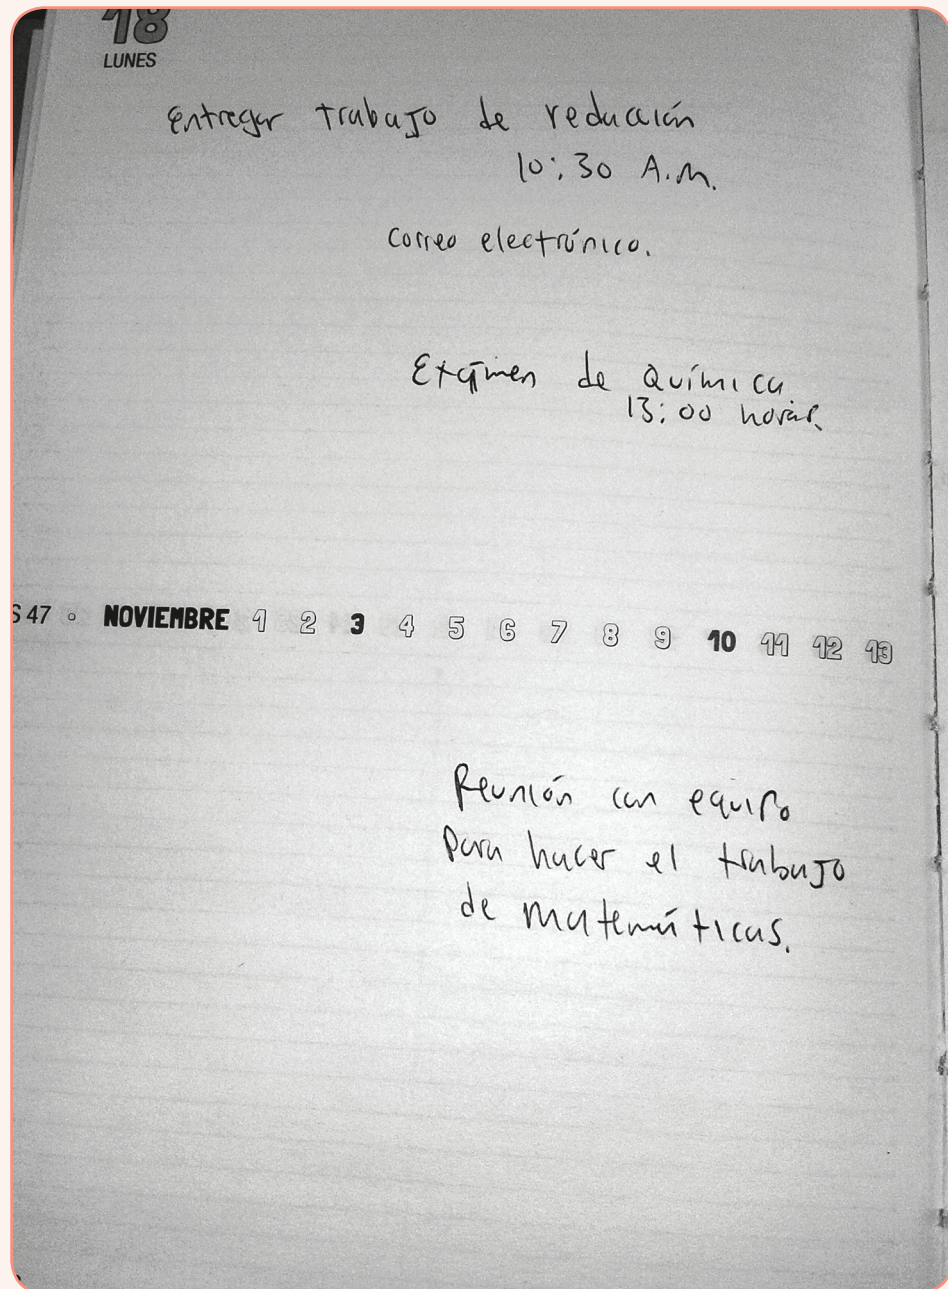 18
LUNES
Entregar trabajo de reducción
10:30 A.M.
Correo electrónico.
Exámen de Química
13:00 horas.
S 47 • NOVIEMBRE 1 2 3 4 5 6 7 8 9 10 11 12 13
Reunión con equipo
para hacer el trabajo
de matemáticas.